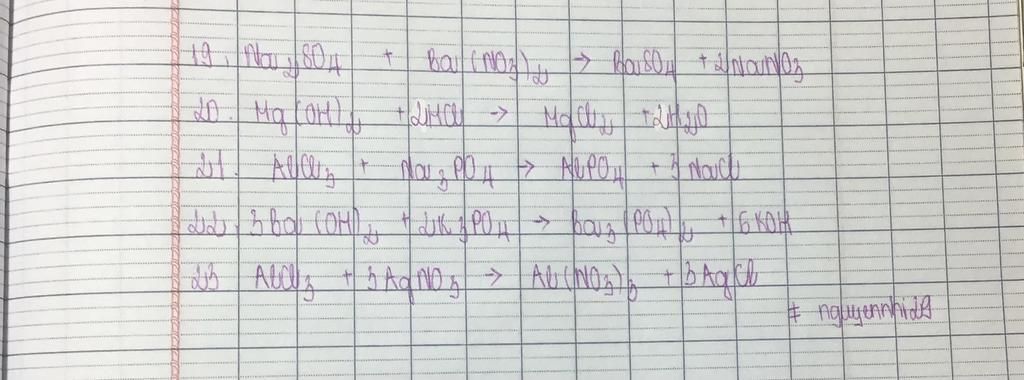 19. Na₂SO₄ + Ba(NO₃)₂ → BaSO₄ + 2NaNO₃
20. Mg(OH)₂ + 2HCl → MgCl₂ + 2H₂O
21. AlCl₃ + Na₃PO₄ → AlPO₄ + 3NaCl
22. 3Ba(OH)₂ + 2K₃PO₄ → Ba₃(PO₄)₂ + 6KOH
23 AlCl₃ + 3AgNO₃ → Al(NO₃)₃ + 3AgCl
# nguyennhi29